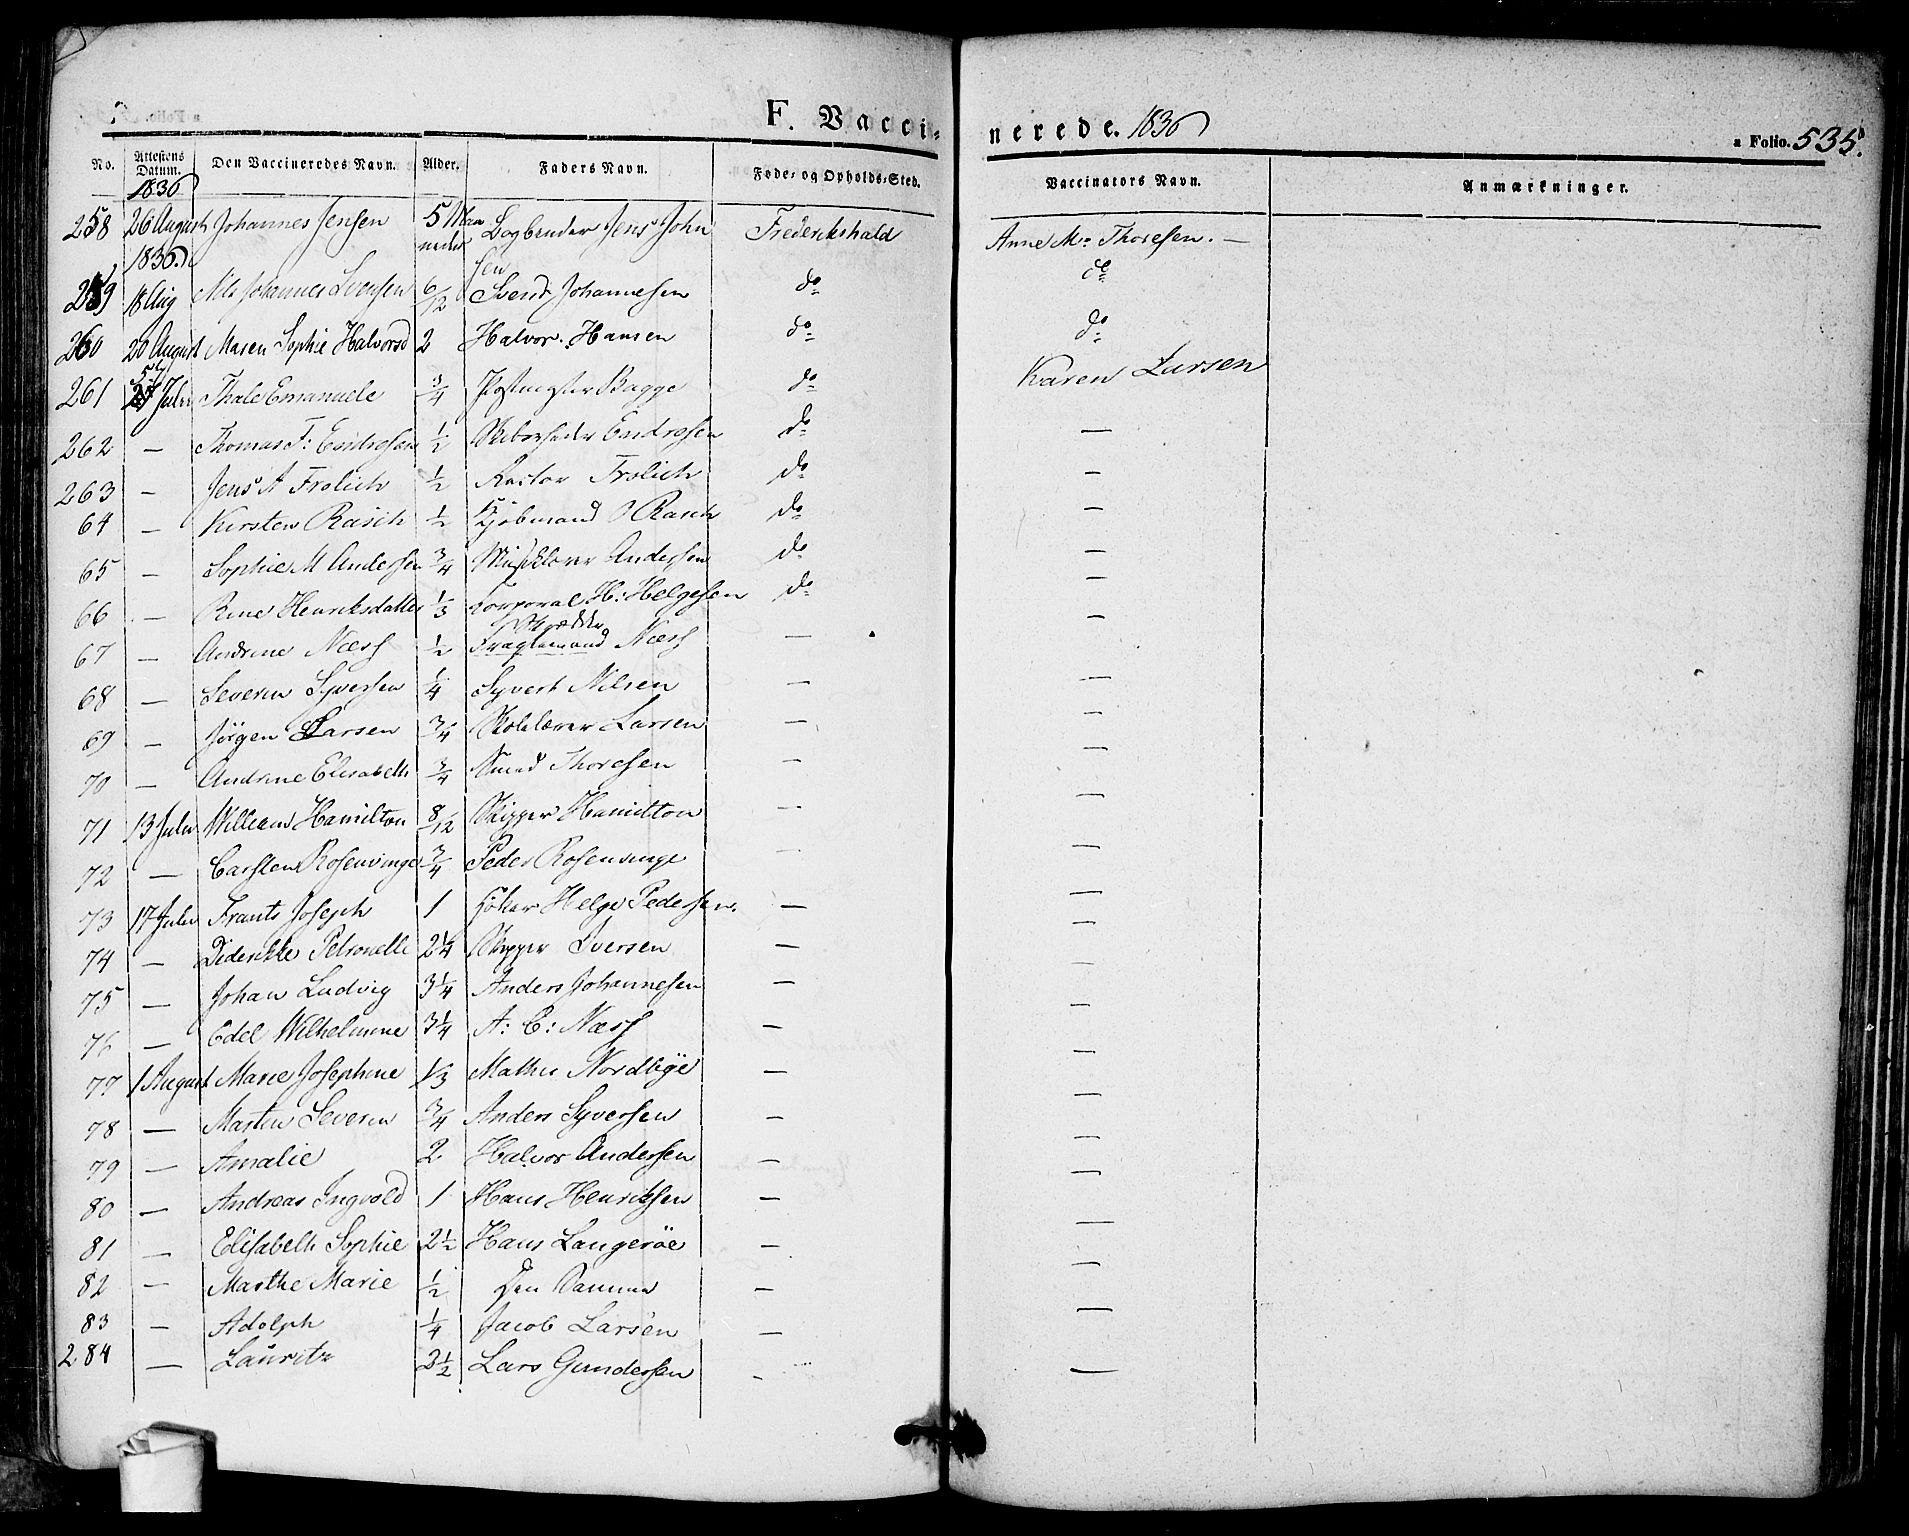 F. Vaccinerede. 1836
a Folio. 535.
No. Attestens Datum. Den Vaccineredes Navn. Alder. Faders Navn. Føde- og Opholds-Sted. Vaccinators Navn. Anmærkninger.
1836
258 26 August 1836. Johannes Jensen 5 Maaneder Bogbinder Jens Johnsen Frederikshald Anne M: Thoresen. —
259 18 Aug Nils Johannes Svensen 6/12 Svend Johannesen do do
260 20 August Maren Sophie Halvorsd 2 Halvor Hansen do do
261 Julii Thale Emanuele 3/4 Postmester Bagge do Karen Larsen
262 — Thomas F: Endresen 1/2 Endresen do —
263 — Jens A Frolich 1/2 Rector Frolich do —
64 — Kirsten Rasch 1/2 Kjøbmand O Rasch do —
65 — Sophie M Andersen 3/4 Andersen do —
66 — Rine Henriksdatter 1/3 Corporal H: Helgesen do —
67 — Andrine Næss 1/2 Fragtemand Næss — —
68 — Severin Syversen 1/4 Syvert Nilsen — —
69 — Jörgen Larsen 3/4 Skolelærer Larsen — —
70 — Andrine Elisabeth 3/4 Smed Thoresen — —
71 13 Julii William Hamilton 8/12 Skipper Hamilton — —
72 — Carsten Rosenvinge 3/4 Peder Rosenvinge — —
73 17 Julii Frants Joseph 1 Høker Helge Pedersen. — —
74 — Diderikke Petronelle 2 1/4 Skipper Iversen — —
75 — Johan Ludvig 3 1/4 Anders Johannesen — —
76 — Edel Wilhelmine 3 1/4 A: C: Næss — —
77 1 August Marie Josephine 1/3 Mathis Nordbye — —
78 — Marten Severin 3/4 Anders Syversen — —
79 — Amalie 2 Halvor Andersen — —
80 — Andreas Ingvold 1 Hans Henriksen — —
81 — Elisabeth Sophie 2 1/2 Hans Langeröe — —
82 — Marthe Marie 1/2 Den Samme — —
83 — Adolph 1/4 Jacob Larsen — —
284 — Lauritz 3 1/2 Lars Gundersen — —